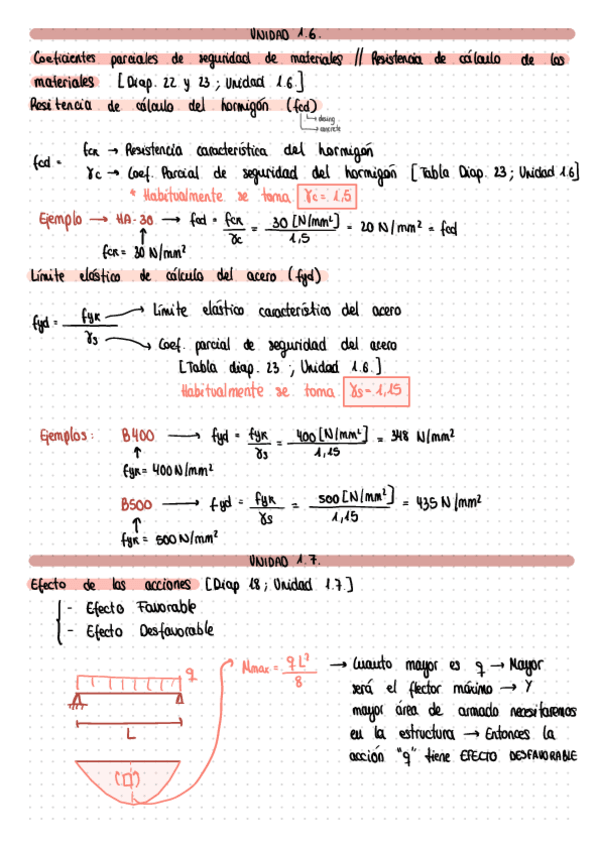 UNIDAD 1.6.
Coeficientes parciales de seguridad de materiales // Resistencia de cálculo de los
materiales [Diap. 22 y 23 ; Unidad 1.6.]
Resitencia de cálculo del hormigón (fcd)
desing
concrete
fcd = fck → Resistencia característica del hormigón
γc → Coef. Parcial de seguridad del hormigón [Tabla Diap. 23 ; Unidad 1.6]
* Habitualmente se toma γc = 1,5
Ejemplo → HA-30 → fcd = fck / γc = 30 [N/mm²] / 1,5 = 20 N/mm² = fcd
fck = 30 N/mm²
Límite elástico de cálculo del acero (fyd)
fyd = fyk / γs
Límite elástico característico del acero
Coef. parcial de seguridad del acero
[Tabla diap. 23 ; Unidad 1.6.]
Habitualmente se toma γs = 1,15
Ejemplos: B400 → fyd = fyk / γs = 400 [N/mm²] / 1,15 = 348 N/mm²
fyk = 400 N/mm²
B500 → fyd = fyk / γs = 500 [N/mm²] / 1,15 = 435 N/mm²
fyk = 500 N/mm²
UNIDAD 1.7.
Efecto de las acciones [Diap 18 ; Unidad 1.7.]
- Efecto Favorable
- Efecto Desfavorable
q
L
Mmax = q L² / 8
→ Cuanto mayor es q → Mayor
será el flector máximo → Y
mayor área de armado necesitaremos
en la estructura → Entonces la
acción "q" tiene EFECTO DESFAVORABLE